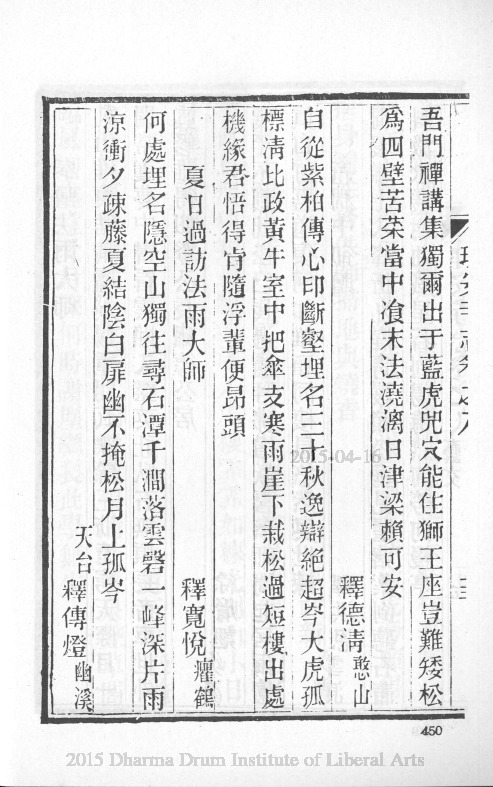 吾門禪講集獨爾出于藍虎兕穴能住獅王座豈難矮松
爲四壁苦菜當中飡末法澆漓日津梁賴可安
釋德淸憨山
自從紫柏傳心印斷壑埋名三十秋逸辯絕超岑大虎孤
標淸比政黃牛室中把傘支寒雨崖下栽松過短樓出處
機緣君悟得肯隨浮輩便昻頭
夏日過訪法雨大師
釋寬悅癯鶴
何處埋名隱空山獨往尋石潭千澗落雲磬一峰深片雨
涼衝夕疎藤夏結陰白扉幽不掩松月上孤岑
天台釋傳燈幽溪
450
2015-04-16
2015 Dharma Drum Institute of Liberal Arts